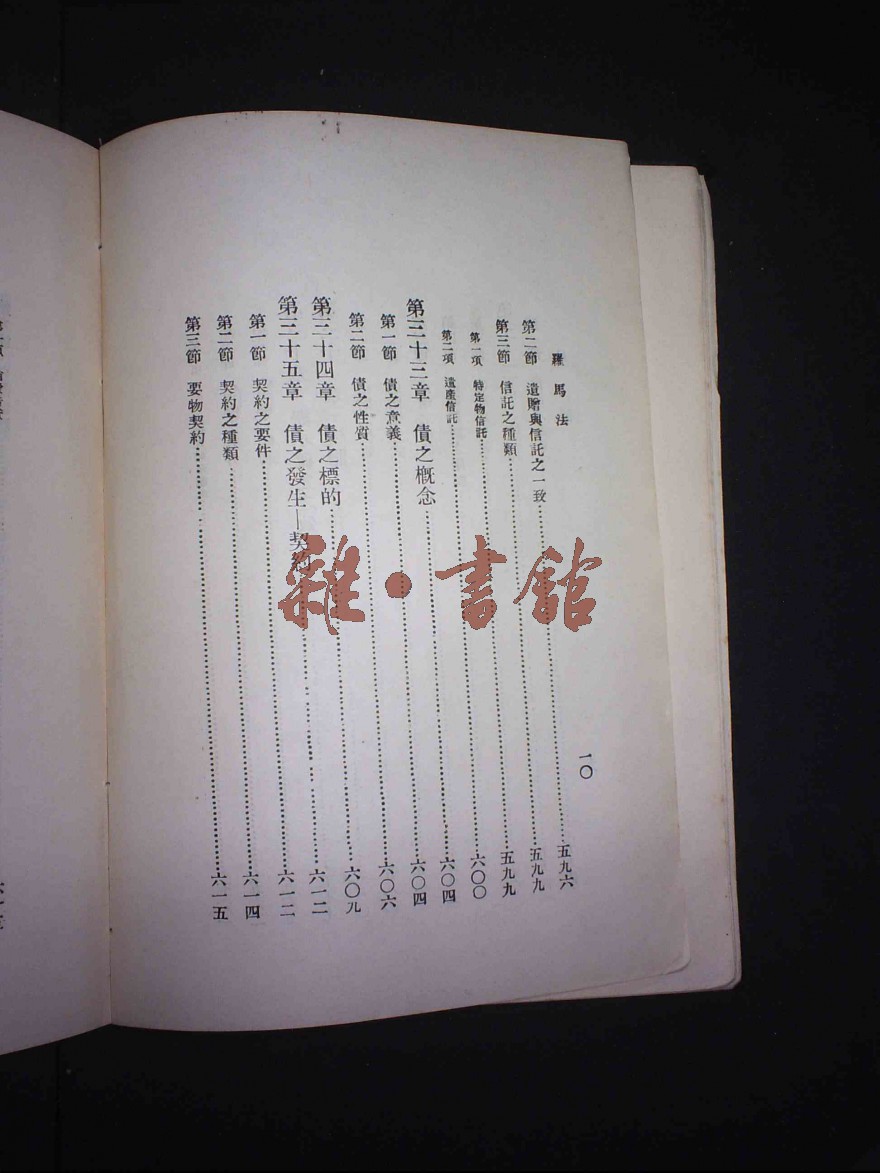 羅馬法 一〇
第二節 遺贈與信託之一致……五九六
第三節 信託之種類……五九九
第一項 特定物信託……五九九
第二項 遺產信託……六〇〇
第三十三章 債之概念……六〇四
第一節 債之意義……六〇四
第二節 債之性質……六〇六
第三十四章 債之標的……六〇九
第三十五章 債之發生—契約……六一二
第一節 契約之要件……六一二
第二節 契約之種類……六一四
第三節 要物契約……六一五
雜·書館